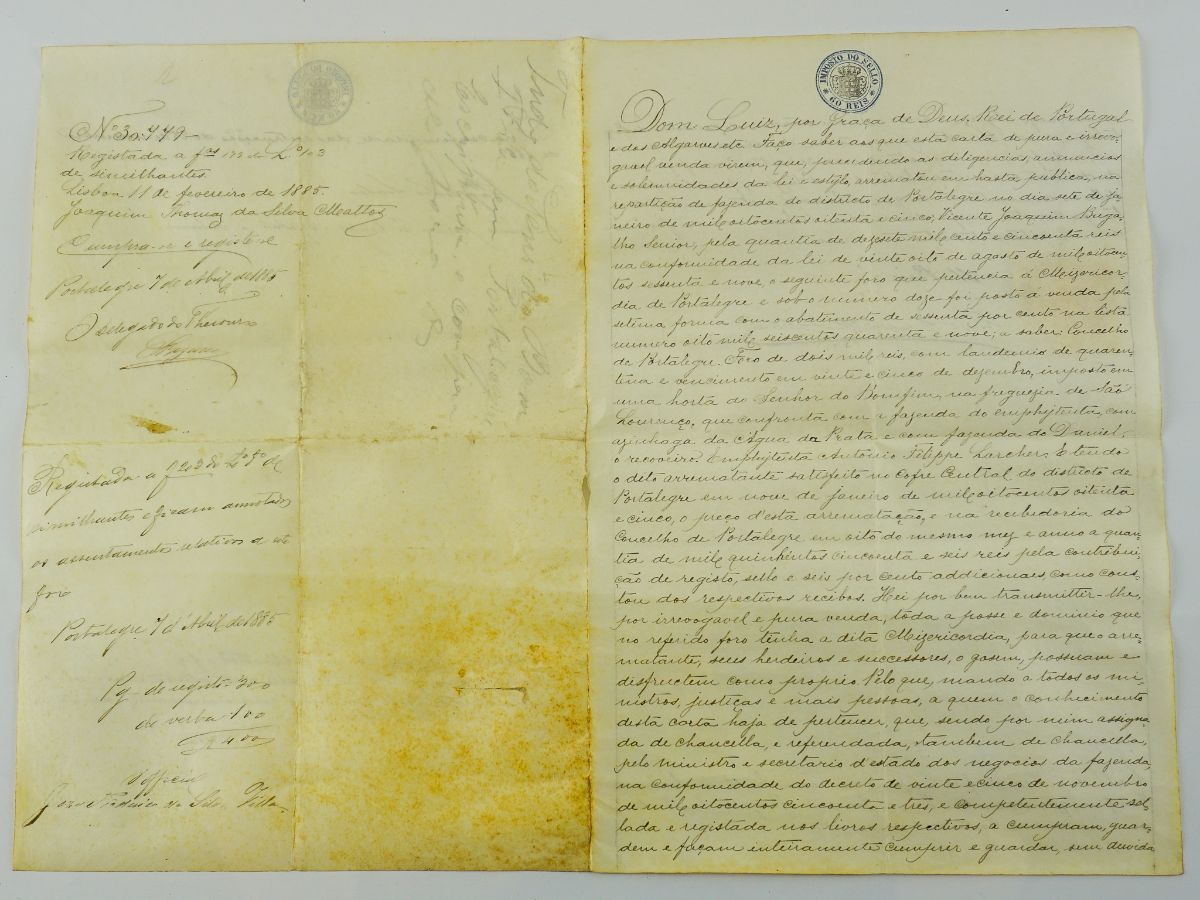 Nº 30.779
Registada a fs 173 do Lº 103
de similhantes.
Lisboa 11 de fevereiro de 1885.
Joaquim Thomaz da Silva Mattoz
Cumpra-se e registe-se
Portalegre 7 de Abril de 1885
O Delegado do Thesouro
Registada a f 203 do Lº 7º de
similhantes e ficam annotados
os assentamentos relativos a este
foro
Portalegre, 7 de Abril de 1885
Pg - de registo 300
de verba 100
400
IMPOSTO DO SELLO
60 REIS
Dom Luiz, por Graça de Deus, Rei de Portugal
e dos Algarves etc. Faço saber aos que esta carta de pura e irrevo-
gavel venda virem, que, precedendo as deligencias, annuncios
e solemnidades da lei e estylo, arrematou em hasta publica, na
repartição de fazenda do districto de Portalegre no dia sete de ja-
neiro de mil oitocentos oitenta e cinco, Vicente Joaquim Briga-
lho Senior, pela quantia de dezesete mil cento e cincoenta reis
na conformidade da lei de vinte oito de agosto de mil oitocen-
tos sessenta e nove, o seguinte foro que pertencia á Mizericor-
dia de Portalegre e sob o numero doze foi posto á venda pela
setima forma com o abatimento de sessenta por cento na lista
numero oito mil seiscentos quarenta e nove; a saber: Concelho
de Portalegre. Foro de dois mil reis, com laudemio de quaren-
tena e vencimento em vinte e cinco de dezembro, imposto em
uma horta do Senhor do Bomfim, na freguezia de São
Lourenço, que confronta com a fazenda do emphyteuta, com
azinhaga da Agua da Prata e com fazenda do Daniel,
o recoveiro. Emphyteuta Antonio Filippe Larcher. E tendo
o dito arrematante satisfeito no Cofre Central do districto de
Portalegre em nove de janeiro de mil oitocentos oitenta
e cinco, o preço d'esta arrematação, e na recebedoria do
Concelho de Portalegre em oito do mesmo mez e anno a quan-
tia de mil quinhentos cincoenta e seis reis pela contribui-
ção de registo, sello e seis por cento addicionaes, como cons-
tou dos respectivos recibos. Hei por bem transmitter-lhe,
por irrevogavel e pura venda, toda a posse e dominio que
no referido foro tenha a dita Mizericordia, para que o arre-
matante, seus herdeiros e successores, o gosem, possuam e
disfructem como proprio. Pelo que, mando a todos os mi-
nistros, justiças e mais pessoas, a quem o conhecimento
desta carta haja de pertencer, que, sendo por mim assigna-
da de chancella, e referendada, tambem de chancella,
pelo ministro e secretario d'estado dos negocios da fazenda,
na conformidade do decreto de vinte e cinco de novembro
de mil oitocentos cincoenta e tres, e competentemente sel-
lada e registada nos livros respectivos, a cumpram, guar-
dem e façam inteiramente cumprir e guardar, sem duvida